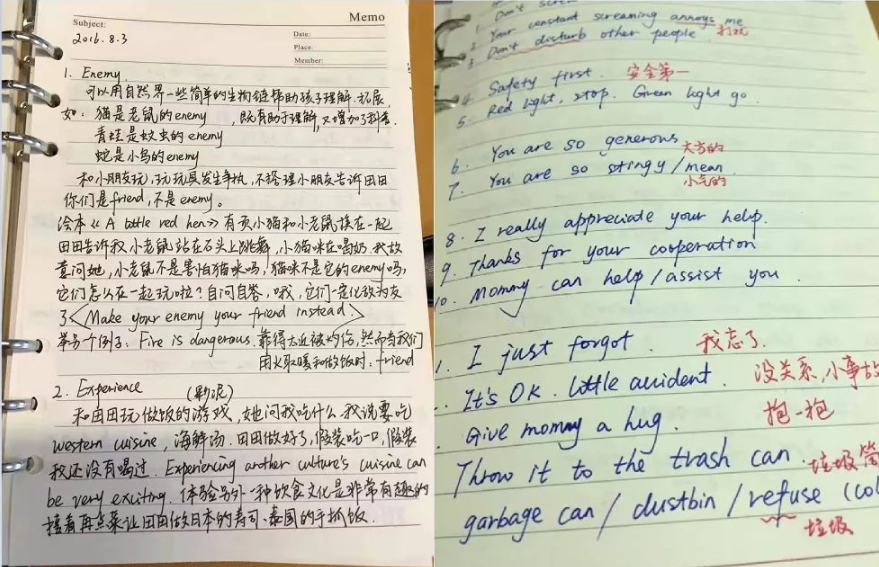 Memo
Subject:
2016.8.3
Date:
Place:
Member:
1. Enemy.
可以用自然界一些简单的生物链帮助孩子理解.拓展,
如: 猫是老鼠的enemy , 既有助于理解,又增加了科普.
青蛙是蚊虫的enemy
蛇是小鸟的enemy
和小朋友玩,玩玩具发生争执,不搭理小朋友告诉田田
你们是friend,不是enemy。
绘本《A little red hen》有页小猫和小老鼠挨在一起
田田告诉我小老鼠站在石头上跳舞,小猫咪在喝奶.我故
意问她,小老鼠不是害怕猫咪吗,猫咪不是它的enemy吗,
它们怎么在一起玩啦?自问自答,哦,它们一定化敌为友
了<Make your enemy your friend instead>
举另个例子: Fire is dangerous. 靠得太近被灼伤,然而当我们
用火取暖和做饭时: friend
2. Experience
和田田玩做饭的游戏,她问我吃什么.我说要吃
western cuisine, 海鲜汤.田田做好了,假装吃一口,假装
我还没有喝过. Experiencing another culture's cuisine can
be very exciting. 体验另外一种饮食文化是非常有趣的
接着再点菜让田田做日本的寿司、泰国的手抓饭.
1. Don't
2. Your constant screaming annoys me
3. Don't disturb other people. 打扰
4. Safety first. 安全第一
5. Red light, stop. Green light go.
6. You are so generous 大方的
7. You are so stingy/mean 小气的
8. I really appreciate your help.
9. Thanks for your cooperation
10. Mommy can help/assist you.
1. I just forgot. 我忘了.
It's OK. Little accident. 没关系,小事故
Give mommy a hug. 抱一抱
Throw it to the trash can. 垃圾筒
garbage can/dustbin/refuse (col
垃圾